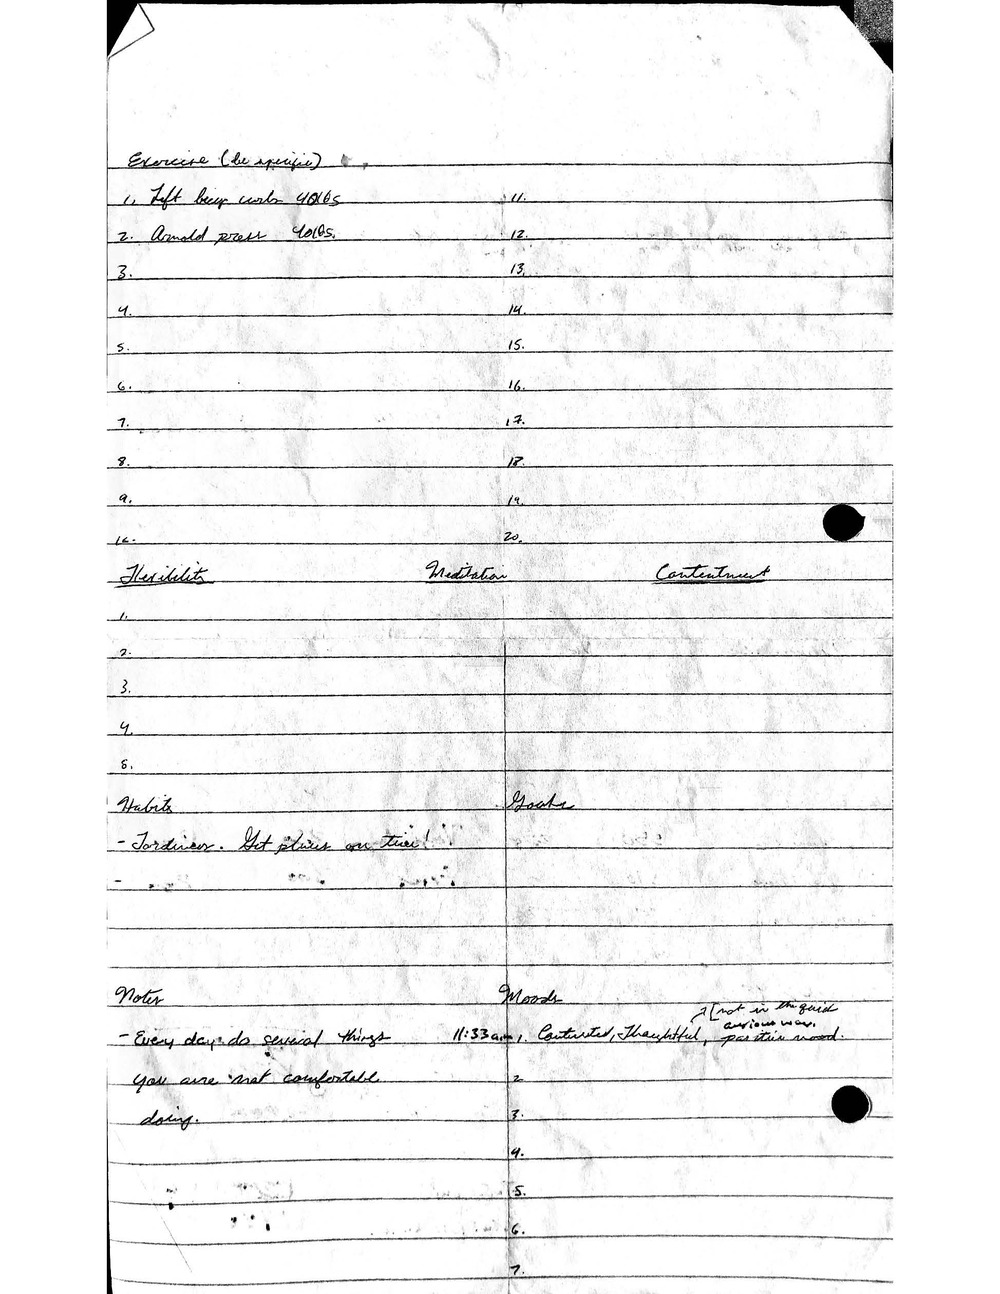 Exercise (be specific)
1. Left bicep curls 40lbs 11.
2. Arnold press 40lbs. 12.
3. 13.
4. 14.
5. 15.
6. 16.
7. 17.
8. 18.
9. 19.
10. 20.
Flexibility Meditation Contentment
1.
2.
3.
4.
5.
Habits Goals
- Get on time!
-
Notes Moods
[not in the
anxious way.
- Every day do several things 11:33a.m. 1. Contented, Thoughtful, mood.
you are not comfortable 2
doing. 3.
4.
5.
6.
7.